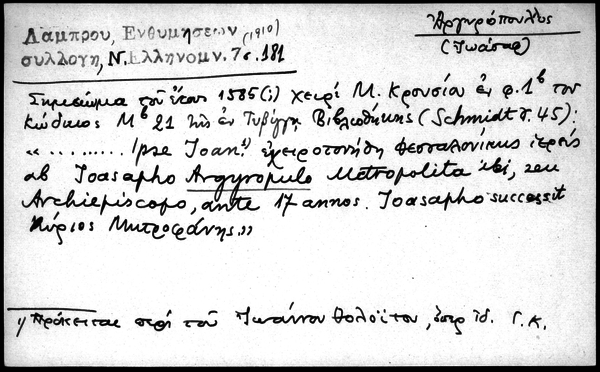 Λάμπρου, Ἐνθυμήσεων (1910)
συλλογή, Ν. Ἑλληνομν. 7ς. 181
Ἀργυρόπουλος
(Ἰωάσαφ)
Σημείωμα τοῦ ἔτους 1585(;) χειρὶ Μ. Κρουσίου ἐν φ. 1b τοῦ
κώδικος Mb 21 τῆς ἐν Τυβίγγῃ Βιβλιοθήκης (Schmidt σ. 45):
« ......... ipse Ioan.¹) ἐχειροτονήθη Θεσσαλονίκης ἱερεὺς
ab Ioasapho Argyropulo Metropolita ibi, seu
Archiepiscopo, ante 17 annos. Ioasapho successit
Κύριος Μητροφάνης»
1) Πρόκειται περὶ τοῦ Ἰωάννου Θολοΐτου, ὅπερ ἰδ. Γ. Κ.